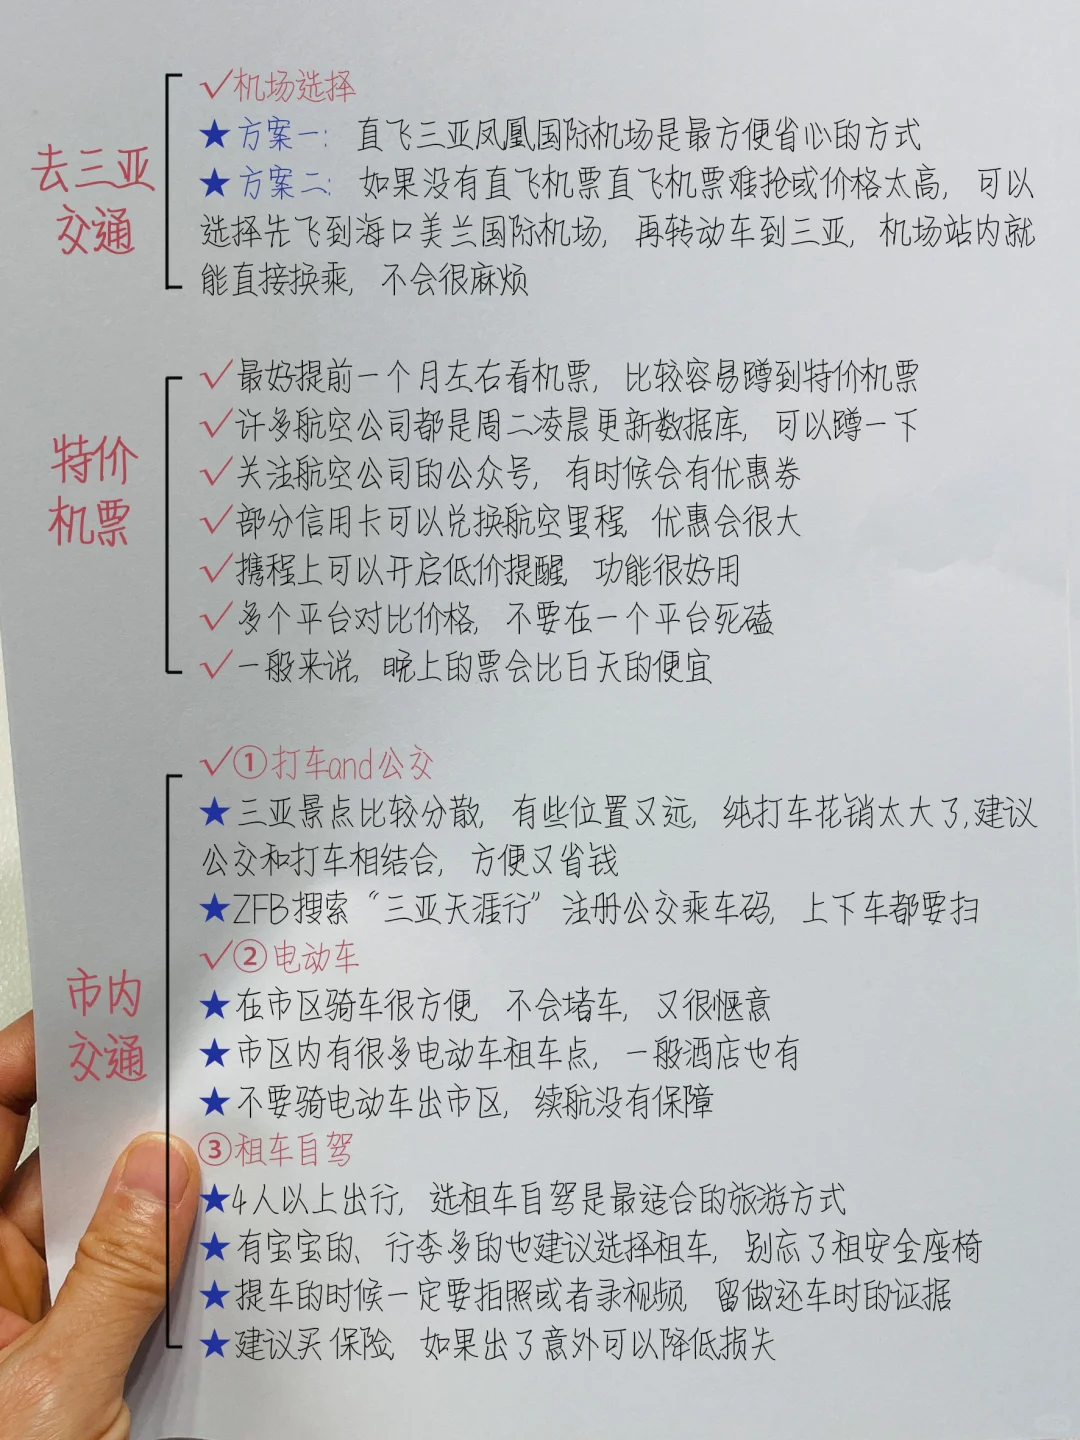 去三亚
交通
✓机场选择
★方案一：直飞三亚凤凰国际机场是最方便省心的方式
★方案二：如果没有直飞机票直飞机票难抢或价格太高，可以
选择先飞到海口美兰国际机场，再转动车到三亚，机场站内就
能直接换乘，不会很麻烦
特价
机票
✓最好提前一个月左右看机票，比较容易蹲到特价机票
✓许多航空公司都是周二凌晨更新数据库，可以蹲一下
✓关注航空公司的公众号，有时候会有优惠券
✓部分信用卡可以兑换航空里程，优惠会很大
✓携程上可以开启低价提醒，功能很好用
✓多个平台对比价格，不要在一个平台死磕
✓一般来说，晚上的票会比白天的便宜
市内
交通
✓①打车and公交
★三亚景点比较分散，有些位置又远，纯打车花销太大了,建议
公交和打车相结合，方便又省钱
★ZFB搜索“三亚天涯行”注册公交乘车码，上下车都要扫
✓②电动车
★在市区骑车很方便，不会堵车，又很惬意
★市区内有很多电动车租车点，一般酒店也有
★不要骑电动车出市区，续航没有保障
③租车自驾
★4人以上出行，选租车自驾是最适合的旅游方式
★有宝宝的、行李多的也建议选择租车，别忘了租安全座椅
★提车的时候一定要拍照或者录视频，留做还车时的证据
★建议买保险，如果出了意外可以降低损失